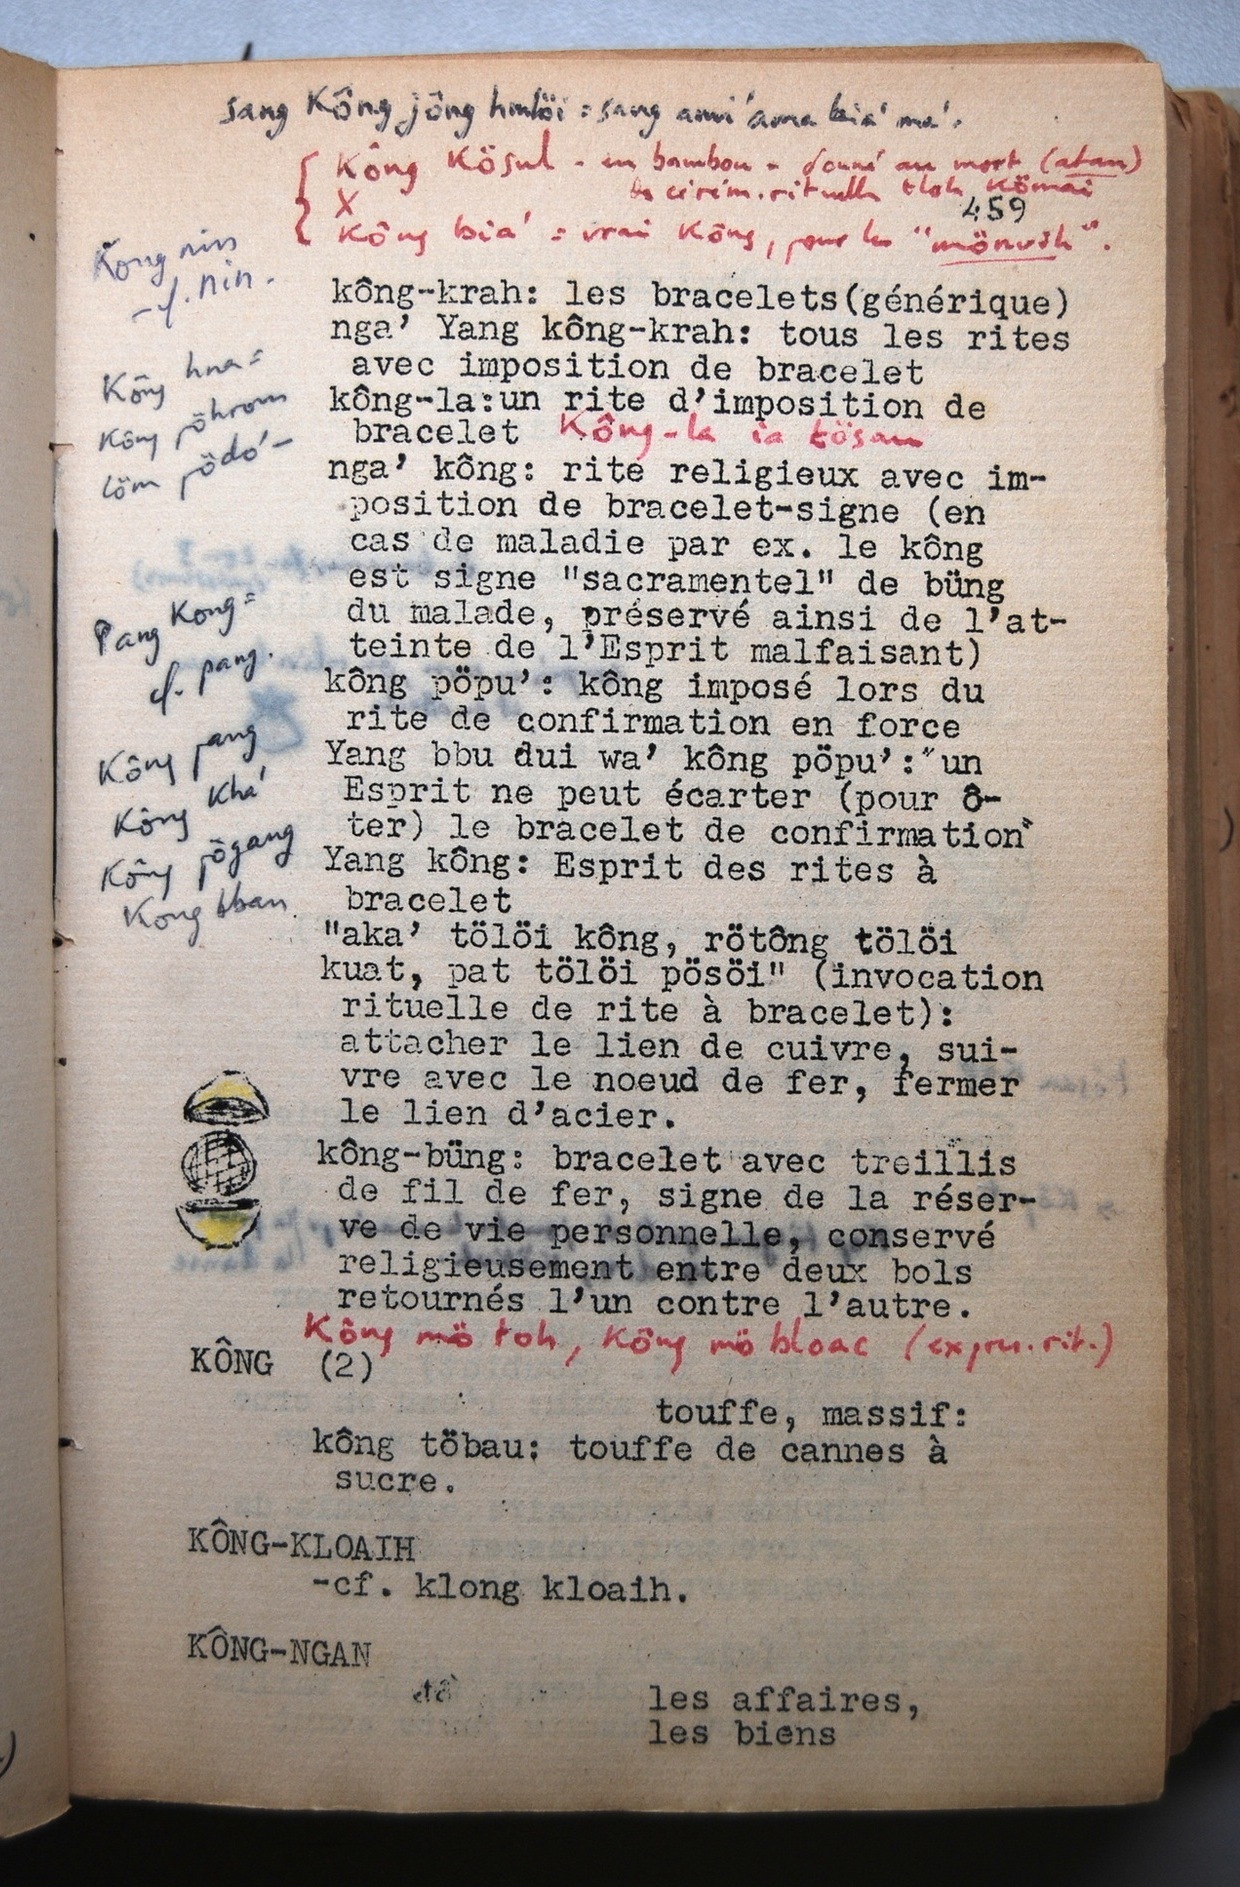 sang Kông jông hmlöi = sang
Kông Kösul - en bambou - donné au mort (atau)
X
459
Kông bia' = vrai Kông, pour les "mönuih".
Kông nin
-cf. nin.
kông-krah: les bracelets(générique)
nga’ Yang kông-krah: tous les rites
avec imposition de bracelet
Kông hna =
kông-la:un rite d’imposition de
Kông pöhrom
bracelet Kông-la ia tösau
löm pödo' -
nga’ kông: rite religieux avec im-
position de bracelet-signe (en
cas de maladie par ex. le kông
est signe "sacramentel" de büng
Pang Kong =
du malade, préservé ainsi de l’at-
teinte de l’Esprit malfaisant)
cf. pang.
kông pöpu’: kông imposé lors du
rite de confirmation en force
Kông pang
Yang bbu dui wa’ kông pöpu’:"un
Kông Kha'
Esprit ne peut écarter (pour ô-
ter) le bracelet de confirmation"
Kông pögang
Yang kông: Esprit des rites à
Kong bban
bracelet
"aka’ tölöi kông, rötông tölöi
kuat, pat tölöi pösöi" (invocation
rituelle de rite à bracelet):
attacher le lien de cuivre, sui-
vre avec le noeud de fer, fermer
le lien d’acier.
kông-büng: bracelet avec treillis
de fil de fer, signe de la réser-
ve de vie personnelle, conservé
religieusement entre deux bols
retournés l’un contre l’autre.
Kông mö toh, Kông mö bloac (expres. rit.)
KÔNG (2)
touffe, massif:
kông töbau: touffe de cannes à
sucre.
KÔNG-KLOAIH
-cf. klong kloaih.
KÔNG-NGAN
les affaires,
les biens